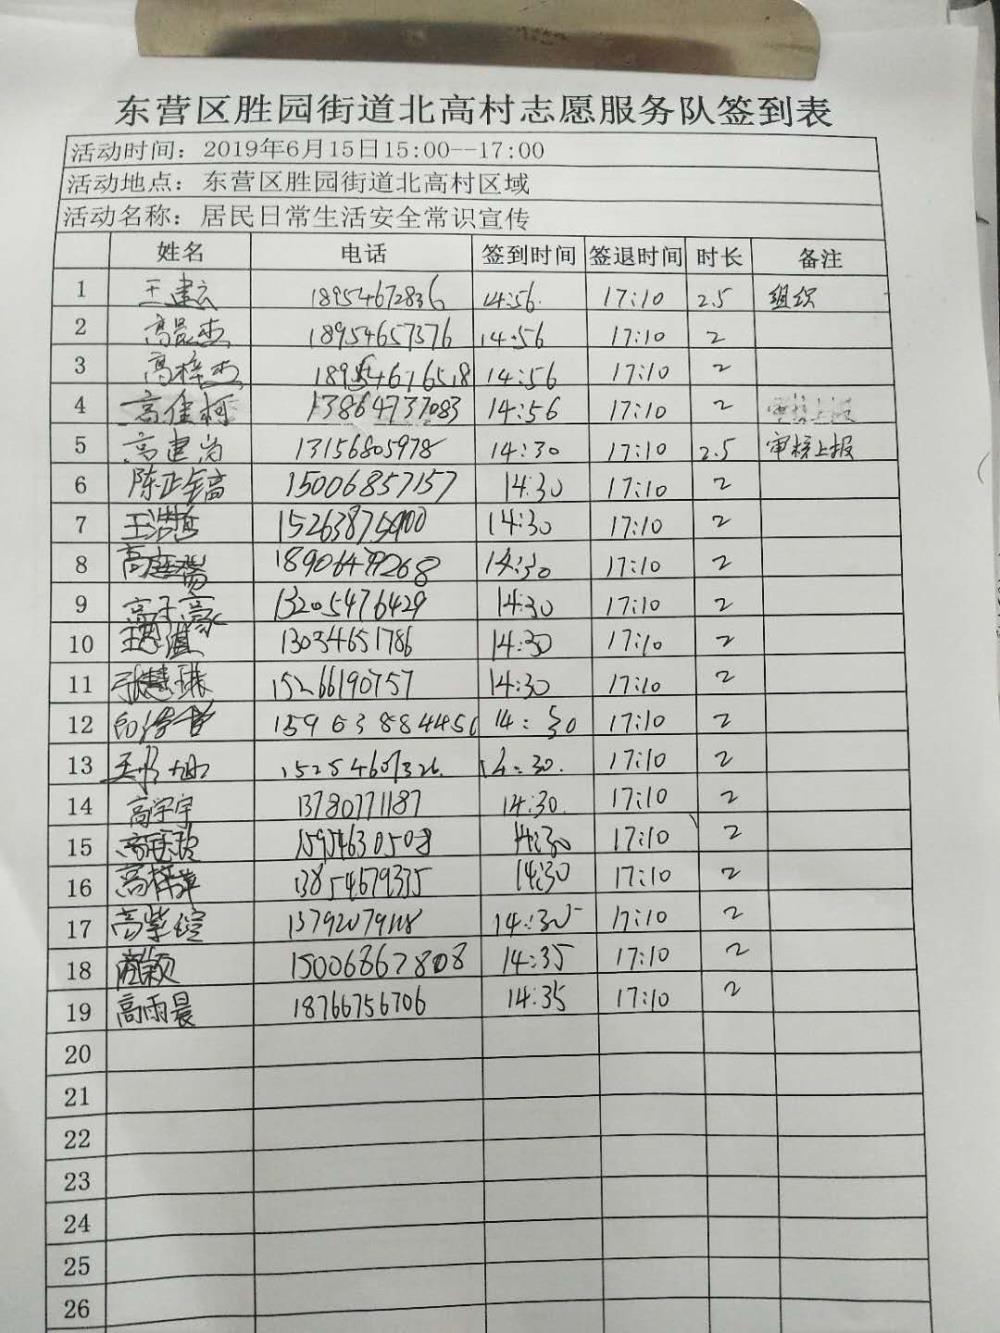 东营区胜园街道北高村志愿服务队签到表
活动时间：2019年6月15日15:00--17:00
活动地点：东营区胜园街道北高村区域
活动名称：居民日常生活安全常识宣传
姓名 电话 签到时间 签退时间 时长 备注
1 王建云 18954672836 14:56. 17:10 2.5 组织
2 高晨杰 18954657376 14:56 17:10 2
3 高梓杰 14:56 17:10 2
4 高佳柯 13864737083 14:56 17:10 2
5 高建岗 13156805978 14:30 17:10 2.5 审核上报
6 15006857157 14:30 17:10 2
7 14:30 17:10 2
8 14:30 17:10 2
9 13205476429 14:30 17:10 2
10 13034651786 14:30 17:10 2
11 张慧琳 15266190757 14:30 17:10 2
12 14:30 17:10 2
13 14:30. 17:10 2
14 高宇宇 13780771187 14:30. 17:10 2
15 15954630508 14:30 17:10 2
16 13854679375 14:30 17:10 2
17 高紫萱 14:30 17:10 2
18 14:35 17:10 2
19 高雨晨 18766756706 14:35 17:10 2
20
21
22
23
24
25
26